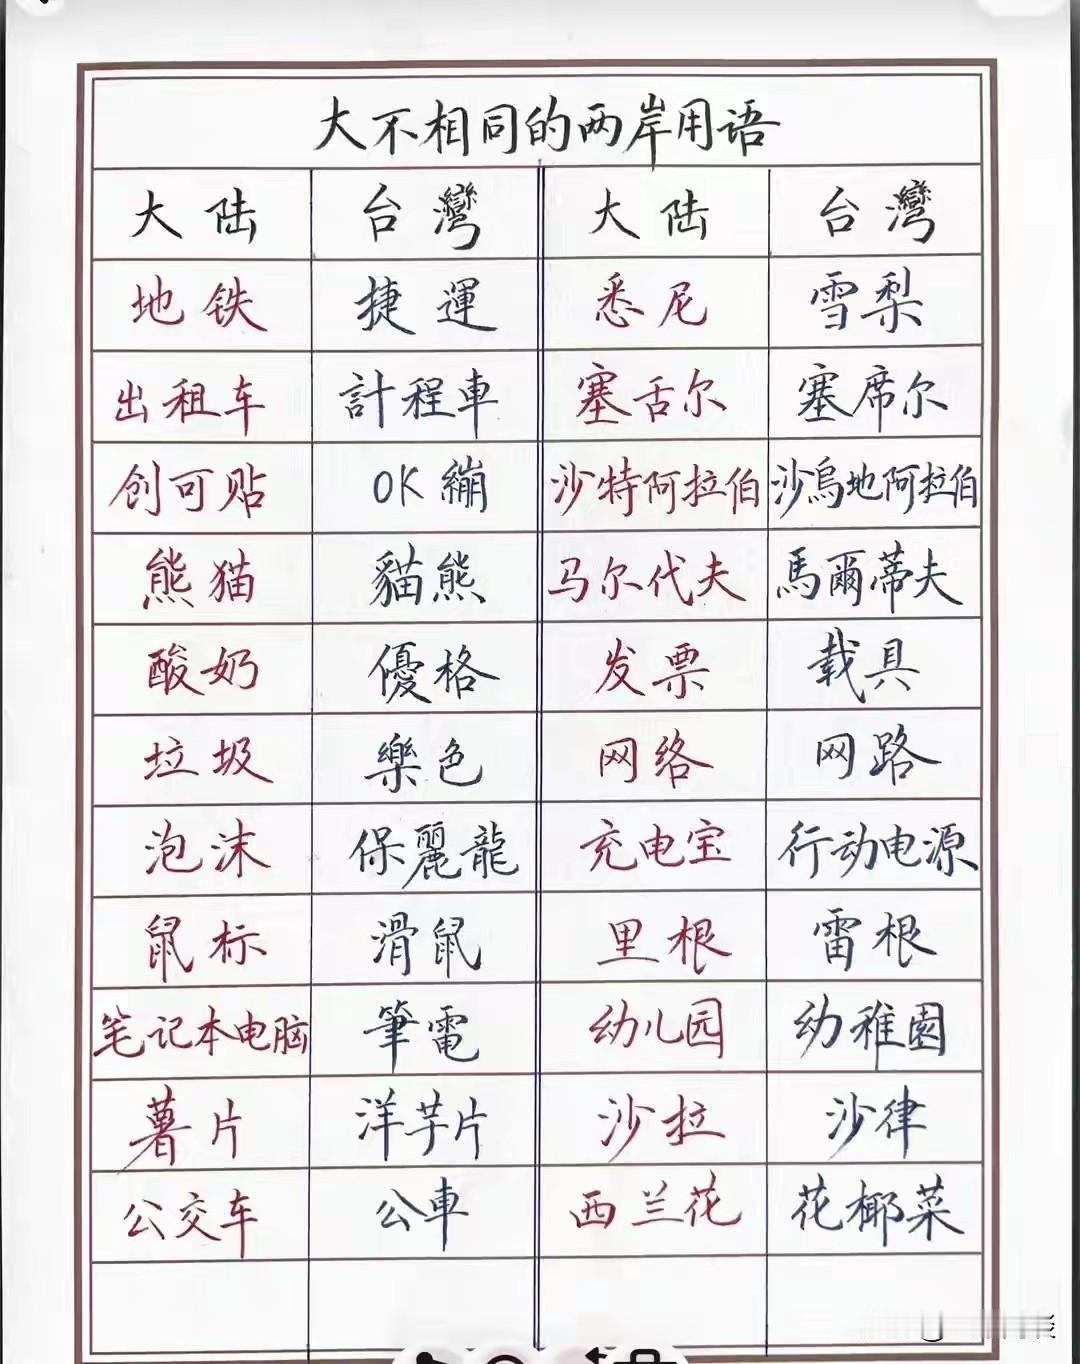 大不相同的两岸用语
大陆 台灣 大陆 台灣
地铁 捷運 悉尼 雪梨
出租车 計程車 塞舌尔 塞席尔
创可贴 OK繃 沙特阿拉伯 沙烏地阿拉伯
熊猫 貓熊 马尔代夫 馬爾蒂夫
酸奶 優格 发票 载具
垃圾 樂色 网络 网路
泡沫 保麗龍 充电宝 行动电源
鼠标 滑鼠 里根 雷根
笔记本电脑 筆電 幼儿园 幼稚園
薯片 洋芋片 沙拉 沙律
公交车 公車 西兰花 花椰菜